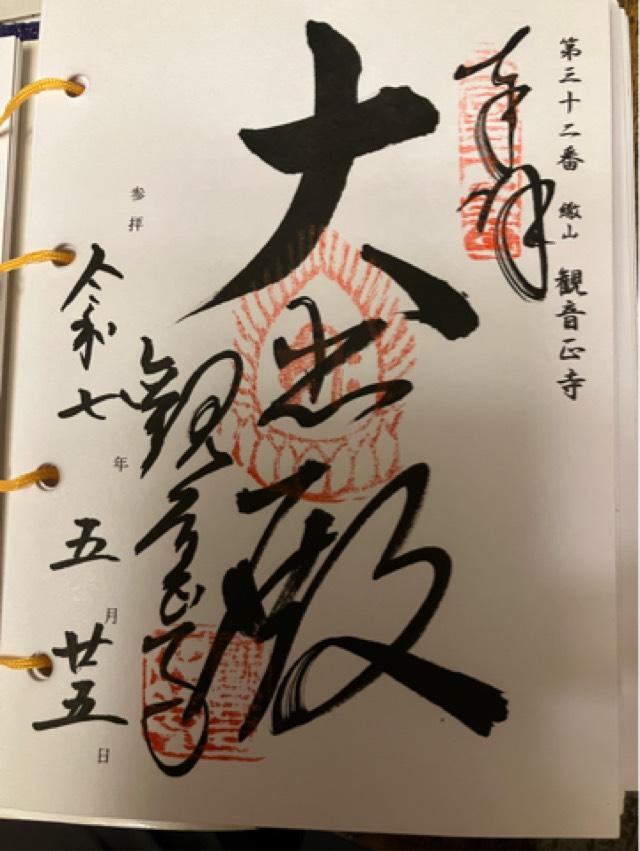 第三十二番 繖山 観音正寺
奉拝
大悲殿
観音正寺
参拝
令和七年五月廿五日